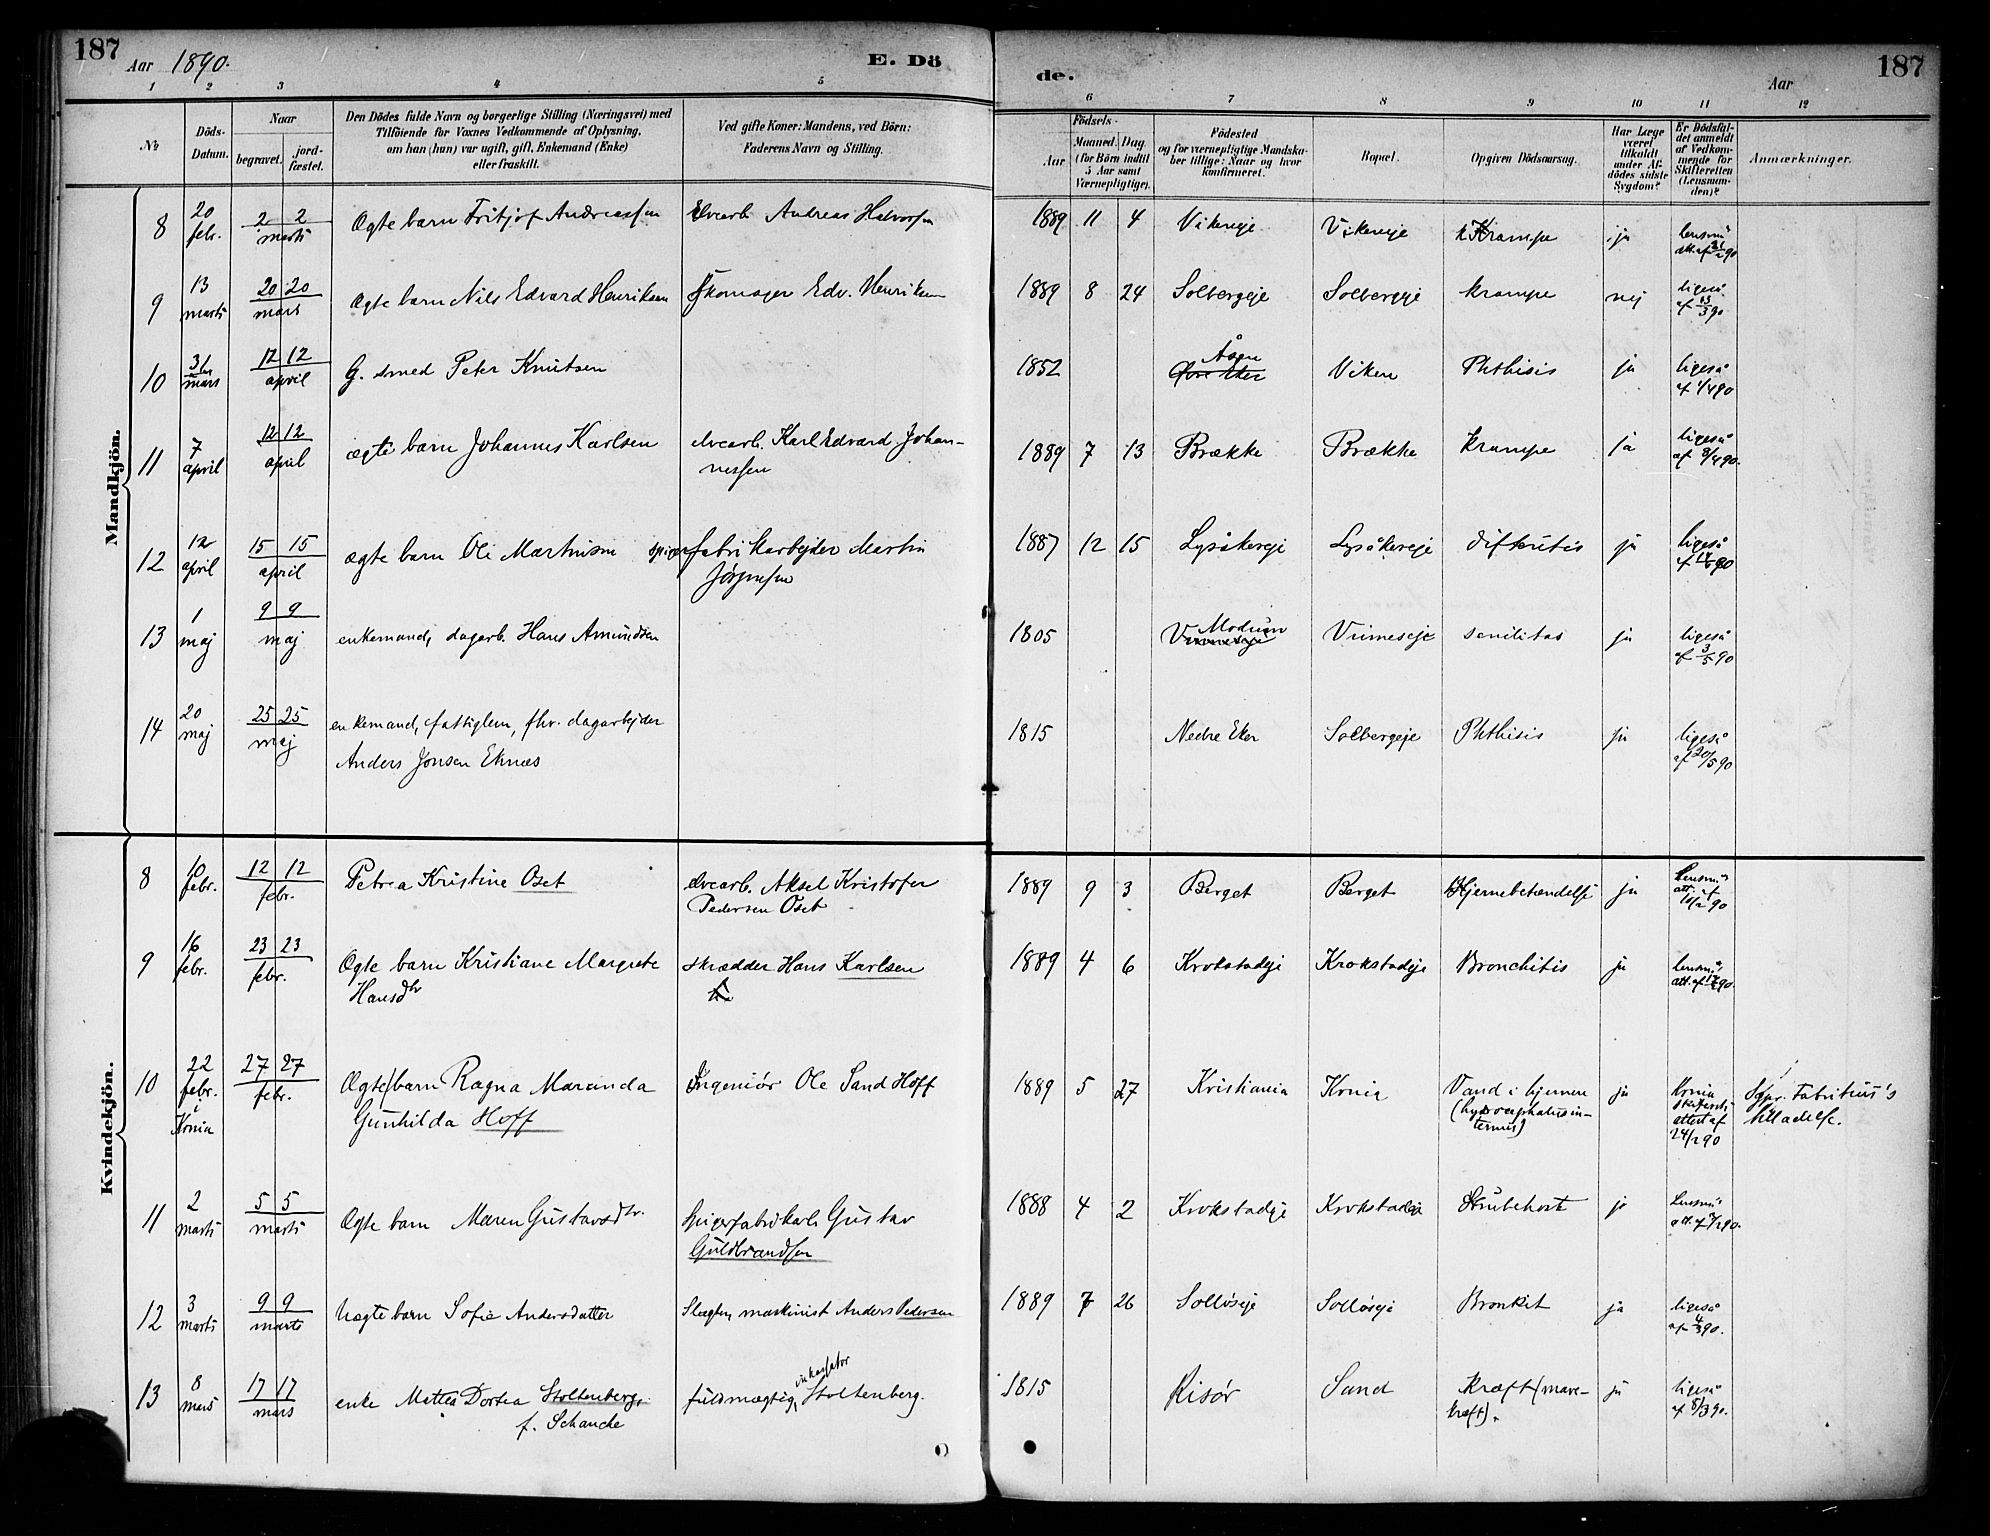 187
Aar 1890.
E. Dö
de.
Aar
187
1 2 3 4 5 6 7 8 9 10 11 12
№
Döds-
Datum.
Naar
begravet.
jord-
fæstet.
Den Dödes fulde Navn og borgerlige Stilling (Næringsvei) med
Tilföiende for Voxnes Vedkommende af Oplysning,
om han (hun) var ugift, gift, Enkemand (Enke)
eller fraskilt.
Ved gifte Koner: Mandens, ved Börn:
Faderens Navn og Stilling.
Födsels-
Aar
Maaned. Dag.
(for Börn indtil
5 Aar samt
Værnepligtige).
Födested
og for værnepligtige Mandska-
ber tillige: Naar og hvor
konfirmeret.
Bopæl.
Opgiven Dödsaarsag.
Har Læge
været
tilkaldt
under Af-
dödes sidste
Sygdom?
Er Dödsfal-
det anmeldt
af Vedkom-
mende for
Skifteretten
(Lensman-
den)?
Anmærkninger.
Mandkjön.
8 20 febr. 2 2 marts Ægte barn Fritjof Andreassen Elvearb. Andreas Halvorsen 1889 11 4 Vikereje Vikereje Krampe ja
9 13 marts 20 20 mars Ægte barn Nils Edvard Henriksen Skomager Edv. Henriksen 1889 8 24 Solbergeje Solbergeje krampe nej ligeså af 13/3 90
10 31 mars 12 12 april G. smed Peter Knutsen 1852 Åsen Øvre Eker Viken Phthisis ja ligeså af 1/4 90
11 7 april 12 12 april ægte barn Johannes Karlsen elvearb. Karl Edvard Johan-
nessen 1889 7 13 Brække Brække krampe ja ligeså af 8/4 90.
12 12 april 15 15 april ægte barn Ole Martinsen spigerfabrikarbejder Martin
Jörgensen 1887 12 15 Lysåkereje Lysåkereje difteritis ja ligeså
13 1 maj 9 9 maj enkemand, dagarb. Hans Amundsen 1805 Modum Vrimeseje senilitas ja ligeså af 3/5 90
14 20 maj 25 25 maj enkemand, fattiglem, fhv. dagarbejder
Anders Jonsen Eknes 1815 Nedre Eker Solbergeje Phthisis ja ligeså af 20/5 90
Kvindekjön.
8 10 febr. 12 12 febr. Petrea Kristine Oset elvearb. Aksel Kristofer
Pedersen Oset 1889 9 3 Berget Berget Hjernebetændelse ja
9 16 febr. 23 23 febr. Ægte barn Kristiane Margrete
Hansdtr skrædder Hans Karlsen 1889 4 6 Krokstadeje Krokstadeje Bronchitis ja
10 22 febr. i Krnia 27 27 febr. Ægte barn Ragna Maranda
Gunhilda Hoff Ingeniör Ole Sand Hoff 1889 5 27 Kristiania Krnia Vand i hjernen
(hydrocephalus in-
ternus) ja Krnia skifterets attest af 24/2 90 Sgpr. Fabritius's
tilladelse.
11 2 marts 5 5 marts Ægte barn Maren Gustavsdtr. Spigerfabrikarb. Gustav
Guldbrandsen 1888 4 2 Krokstadeje Krokstadeje Strubehoste ja
12 3 marts 9 9 marts Uægte barn Sofie Andersdatter maskinist Anders Pedersen 1889 7 26 Solløseje Solløseje Bronkit ja ligeså af 4/3 90.
13 8 mars 17 17 mars enke Mattea Dortea Stoltenberg,
f. Schanche fuldmægtig, inkassator Stoltenberg. 1815 Risör Sand Kræft (mave-
kræft). ja ligeså af 8/3 90.